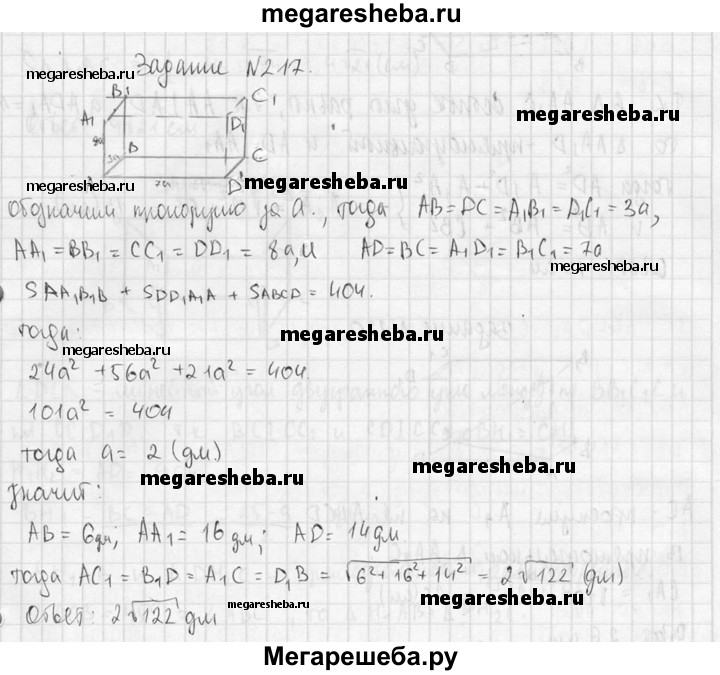 megaresheba.ru
Задание №217.
megaresheba.ru
B1
C1
A1
D1
megaresheba.ru
8a
B
3a
C
7a
D
megaresheba.ru
megaresheba.ru
Обозначим пропорцию за a., тогда AB = DC = A1B1 = D1C1 = 3a,
AA1 = BB1 = CC1 = DD1 = 8a, и AD = BC = A1D1 = B1C1 = 7a
megaresheba.ru
SAA1B1B + SDD1A1A + SABCD = 404.
тогда:
megaresheba.ru
megaresheba.ru
24a² + 56a² + 21a² = 404.
101a² = 404
тогда a = 2 (дм)
megaresheba.ru
megaresheba.ru
значит:
AB = 6дм; AA1 = 16 дм; AD = 14 дм
тогда AC1 = B1D = A1C = D1B = √6²+16²+14² = 2√122 (дм)
megaresheba.ru
Ответ: 2√122 дм
megaresheba.ru
Мегарешеба.ру